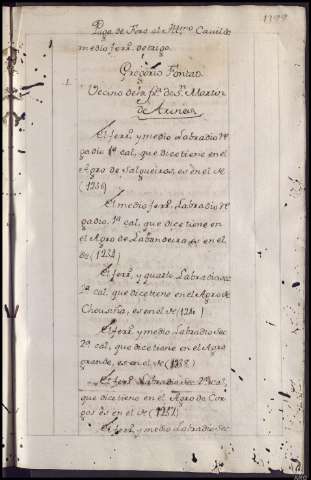 1399
Paga de Foro al Yltmo Cavildo
medio ferr. de trigo.
1. Gregorio Fontao
Vecino de la fra. de Sn. Martin
de
El ferr. y medio Labradio Re
gadio 1ª cal, que dice tiene en el
Agro de Salgueiros, es en el de
(1236)
El medio ferr. Labradio Re
gadio, 1ª cal, que dice tiene en
el Agro de Labandeira es en el
de (1234)
El ferr. y quarto Labradio sec.
2ª cal, que dice tiene en el Agro de
Chousiña, es en el de (1241)
El ferr. y medio Labradio sec
2ª cal, que dice tiene en el Agro
grande, es en el de (1238)
El ferr. Labradio sec 2ª cal,
que dice tiene en el Agro de Cor
gos es en el de (1237)
El ferr. y medio Labradio sec